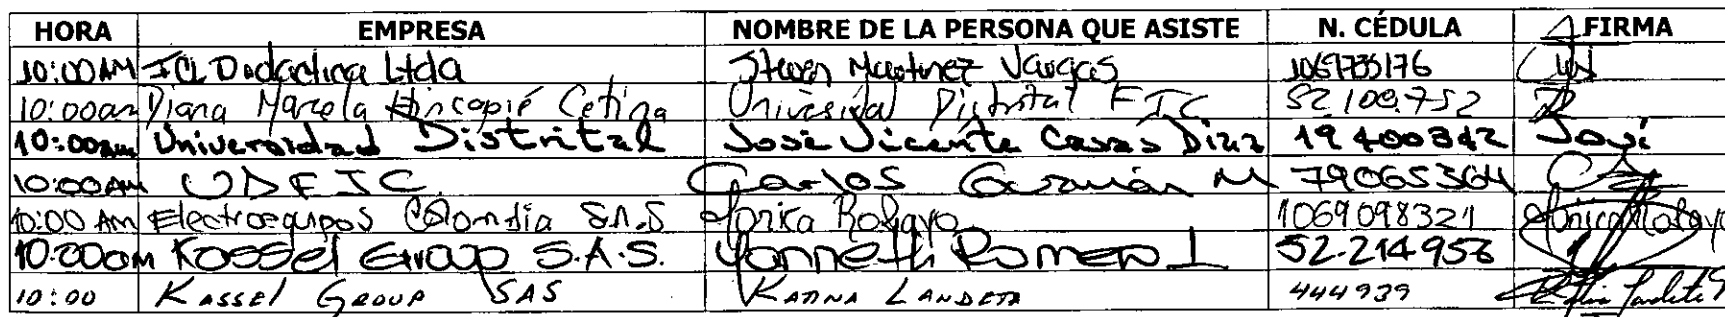 HORA EMPRESA NOMBRE DE LA PERSONA QUE ASISTE N. CÉDULA FIRMA
10:00AM ICL Didactica Ltda Steven Martinez Vargas
10:00am Diana Marcela Hincapié Cetina Universidad Distrital FJC 52109.752
10:00am Universidad Distrital José Vicente Casas Diaz 19400342 José
10:00AM UDFJC. Carlos Guzmán M 79065364
10:00 Am Electroequipos Colombia S.A.S Monica Rosayo 1069098321
10:00am Kassel Group S.A.S. Yanneth Romero L 52.214956
10:00 KASSEL GROUP SAS KATINA LANDETA 444939